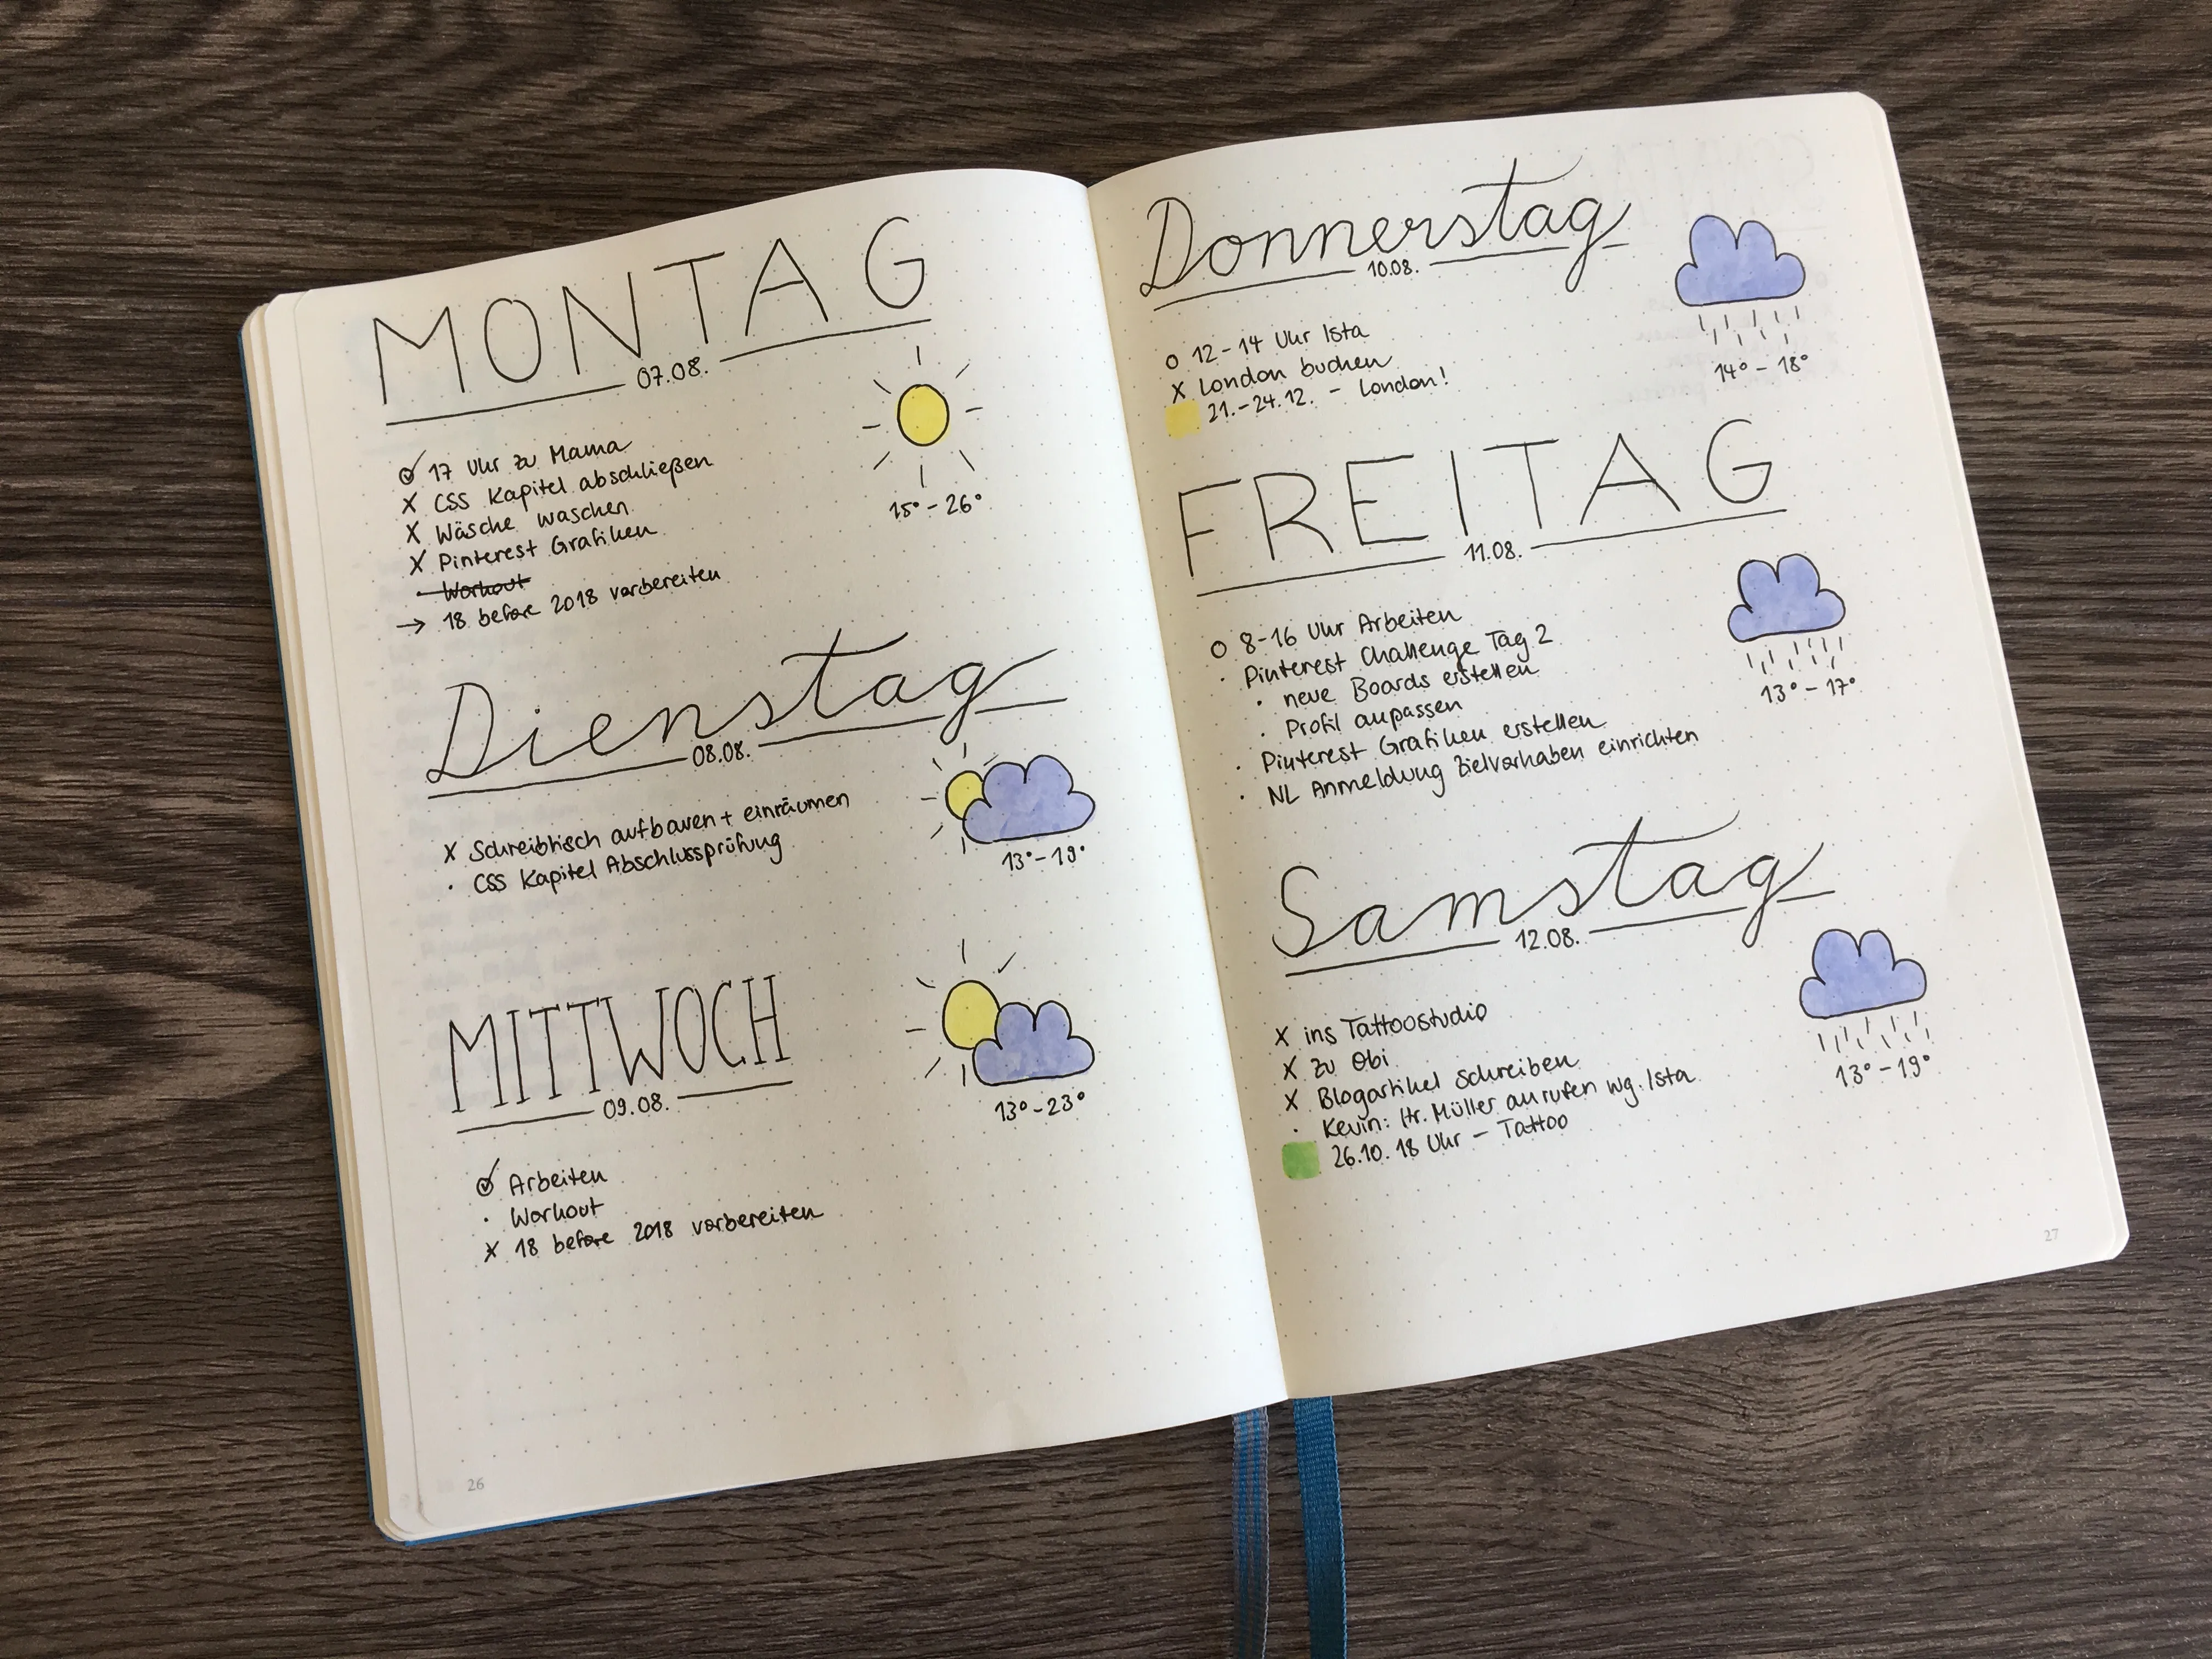 MONTAG
07.08.
17 Uhr zu Mama
X CSS Kapitel abschließen
X Wäsche waschen
X Pinterest Grafiken
· Workout
→ 18 before 2018 vorbereiten
15° - 26°
Dienstag
08.08.
X Schreibtisch aufbauen + einräumen
· CSS Kapitel Abschlussprüfung
13° - 19°
MITTWOCH
09.08.
Arbeiten
· Workout
X 18 before 2018 vorbereiten
13° - 23°
26
Donnerstag
10.08.
O 12 - 14 Uhr Ista
X London buchen
21. - 24.12. - London!
14° - 18°
FREITAG
11.08.
O 8-16 Uhr Arbeiten
· Pinterest Challenge Tag 2
· neue Boards erstellen
· Profil anpassen
· Pinterest Grafiken erstellen
· NL Anmeldung Zielvorhaben einrichten
13° - 17°
Samstag
12.08.
X ins Tattoostudio
X zu Obi
X Blogartikel schreiben
· Kevin: Hr. Müller anrufen wg. Ista
26.10. 18 Uhr - Tattoo
13° - 19°
27